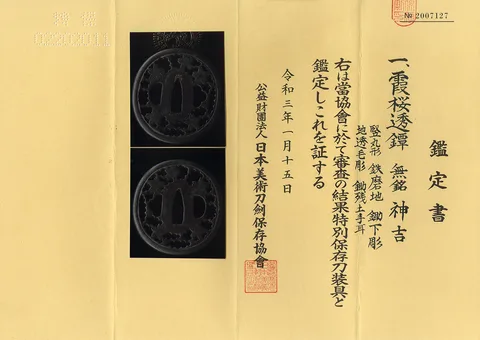 № 2007127
鑑定書
一、霞桜透鐔 無銘 神吉
竪丸形 鉄磨地 鋤下彫
地透毛彫 鋤残土手耳
右は當協會に於て審査の結果特別保存刀装具と
鑑定しこれを証する
令和三年一月十五日
公益財團法人 日本美術刀劍保存協會